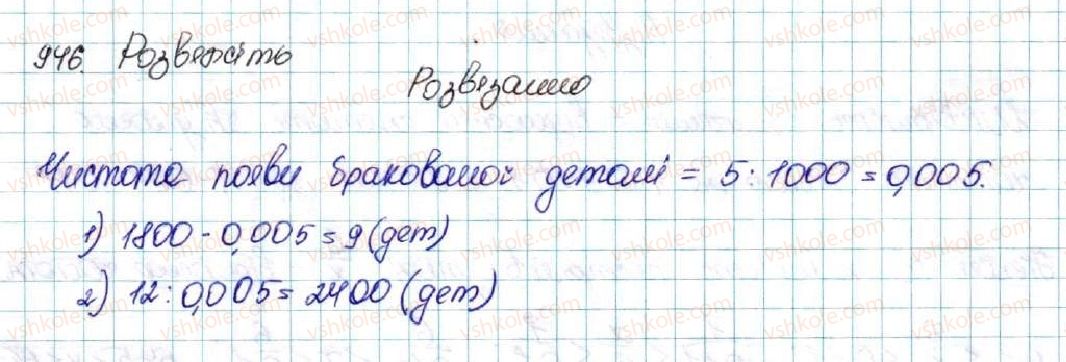 946. Розвежіть
Розвізанно
Чистота появи бракованої деталі = 5 : 1000 = 0,005.
1) 1800 · 0,005 = 9 (дет)
2) 12 : 0,005 = 2400 (дет)